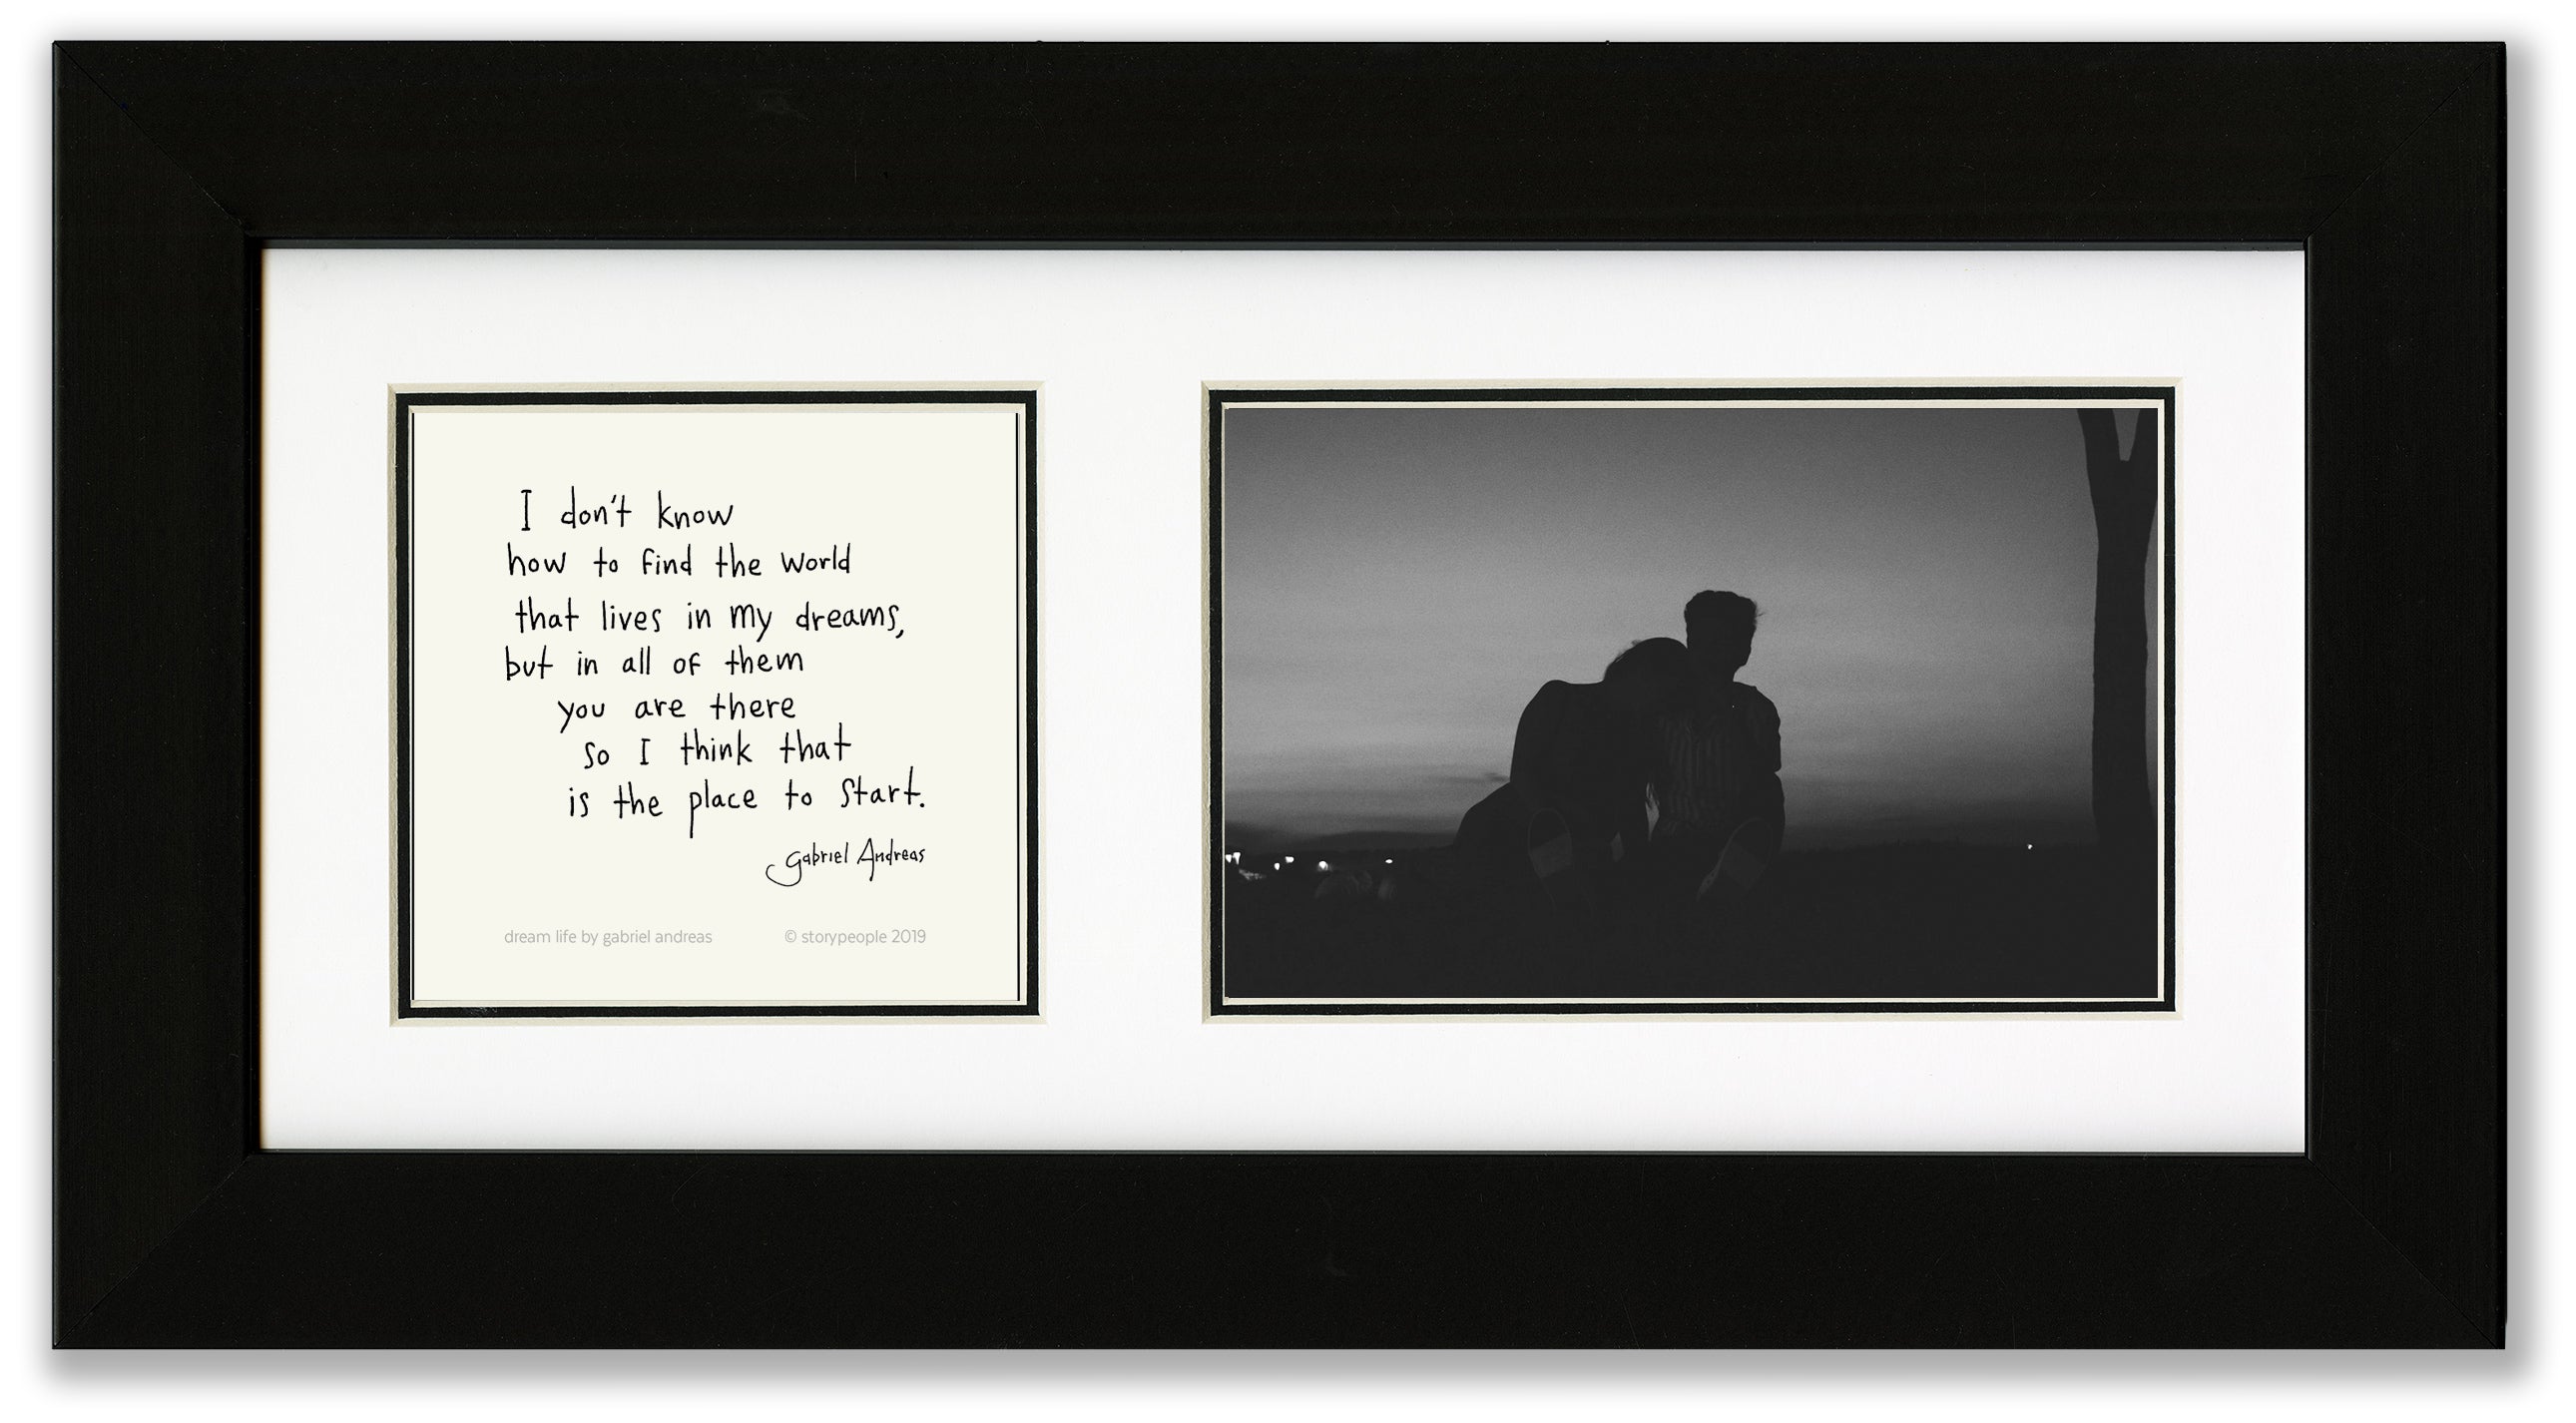 I don't know
how to find the world
that lives in my dreams,
but in all of them
you are there
so I think that
is the place to start.
Gabriel Andreas
dream life by gabriel andreas © storypeople 2019